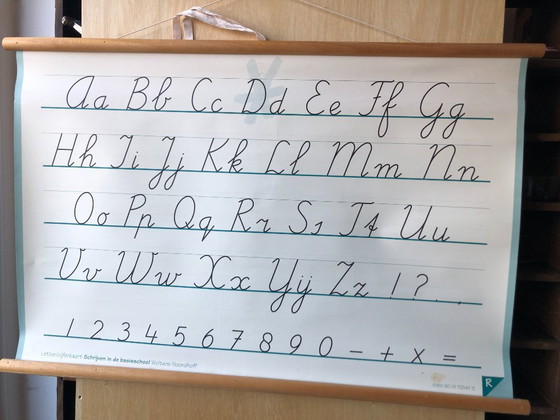 Aa Bb Cc Dd Ee Ff Gg
Hh Ii Jj Kk Ll Mm Nn
Oo Pp Qq Rr Ss Tt Uu
Vv Ww Xx IJij Zz ! ? . ,
1 2 3 4 5 6 7 8 9 0 - + x =
Letterlijnenkaart Schrijven in de basisschool Wolters-Noordhoff
R